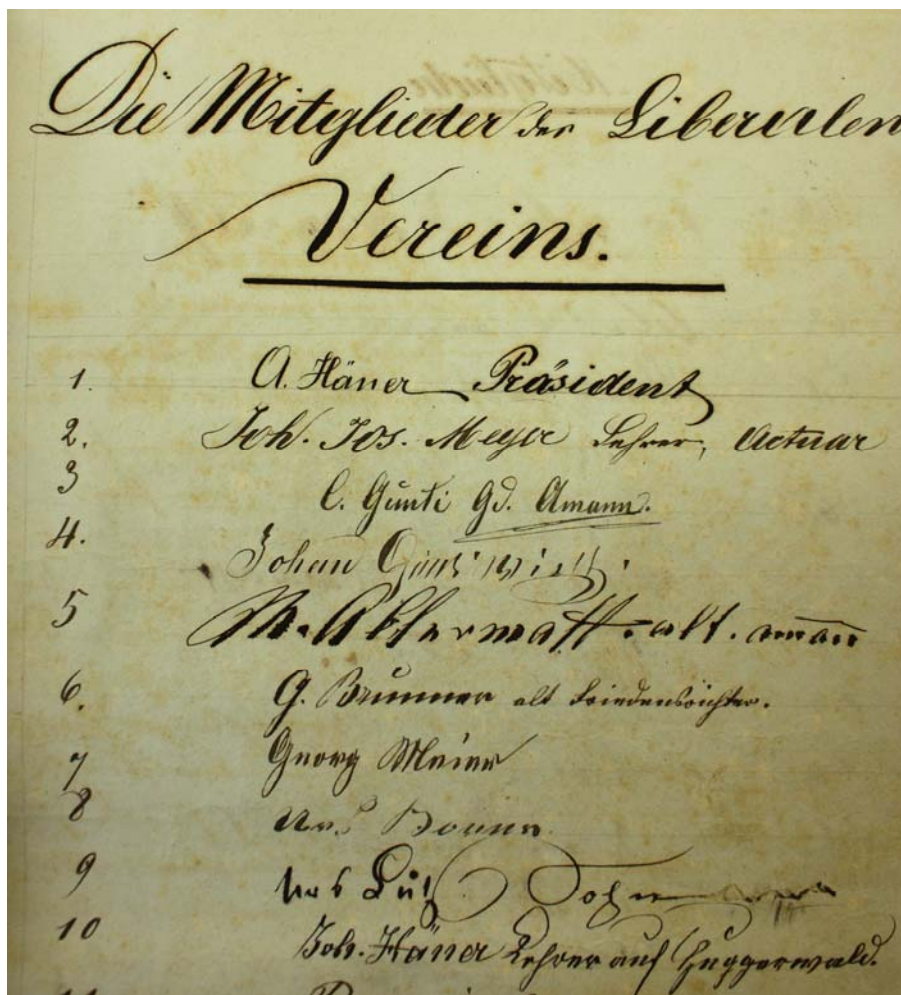 Die Mitglieder des Liberalen
Vereins.
1. A. Häner Präsident
2. Joh. Jos. Meyer Lehrer, Actuar
3 C. Gunti Gd. Amann.
4. Johan
5 alt. aman
6. G. Brunner alt Friedensrichter.
7 Georg Meier
8 Urs Borer
9 Urs
10 Joh. Häner Lehrer auf Huggerwald.